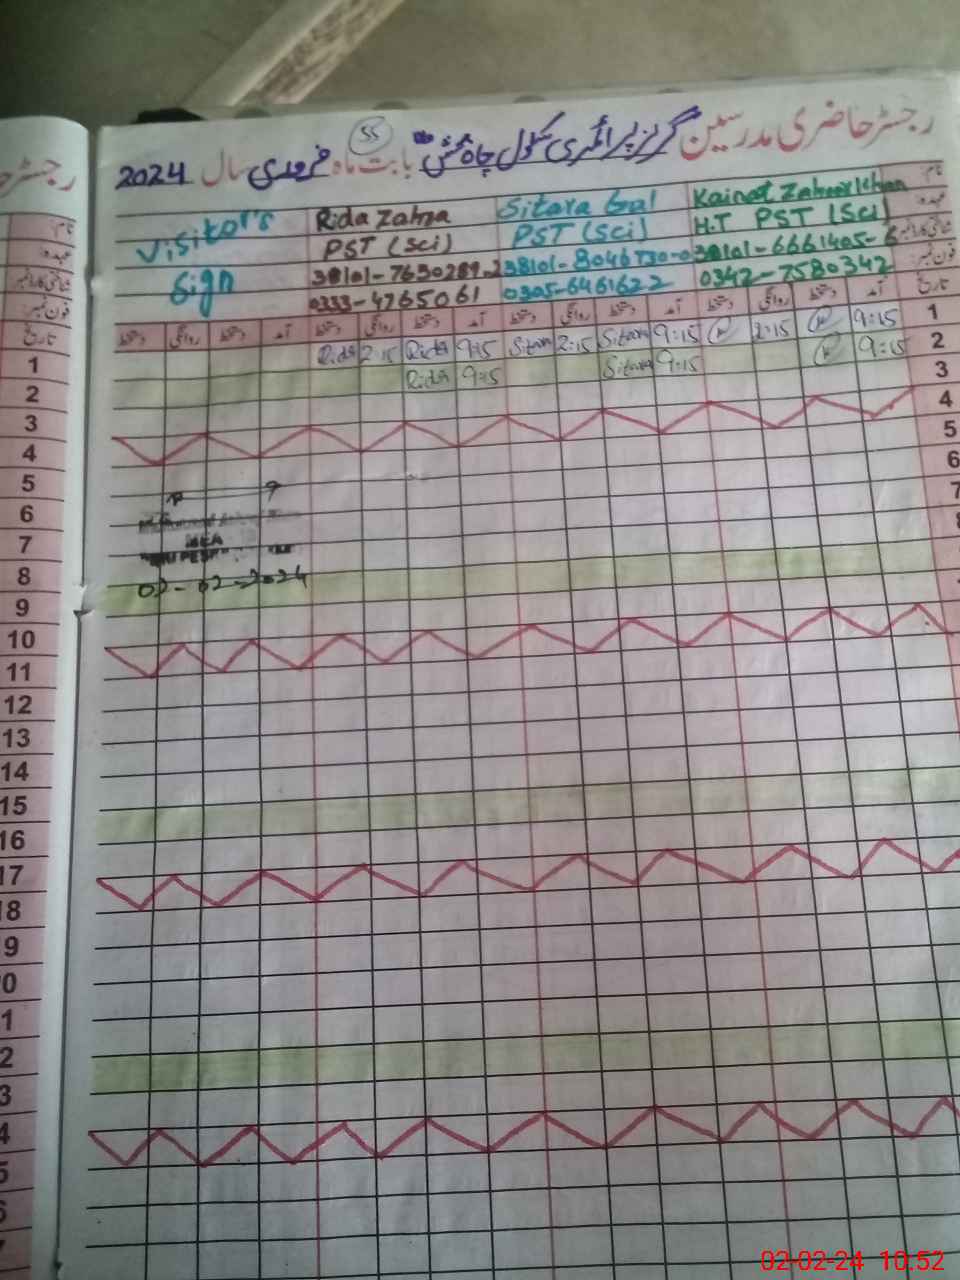 رجسٹر حاضری مدرسین گرلز پرائمری سکول چاہ بخش بابت ماہ فروری سال 2024
55
نام
Kainat Zaheer Khan
Sitara Gul
Rida Zahra
Visitor's
عہدہ
H.T PST (Sci)
PST (Sci)
PST (Sci)
Sign
شناختی کارڈ نمبر
38101-6661405-6
38101-8046730-0
38101-7650289-2
فون نمبر
0342-7580342
0305-6461622
0333-4765061
تاریخ
آمد دستخط روانگی دستخط آمد دستخط روانگی دستخط آمد دستخط روانگی دستخط آمد دستخط روانگی دستخط
1 9:15 2:15 9:15 Sitara 2:15 Sitara 9:15 Rida 2:15 Rida
2 9:15 9:15 Sitara 9:15 Rida
3
4
5
6
7
MEA
02-02-2024
رجسٹر
نام
عہدہ
شناختی کارڈ نمبر
فون نمبر
تاریخ
1
2
3
4
5
6
7
8
9
10
11
12
13
14
15
16
17
18
9
0
1
2
3
4
5
6
7
02-02-24 10:52